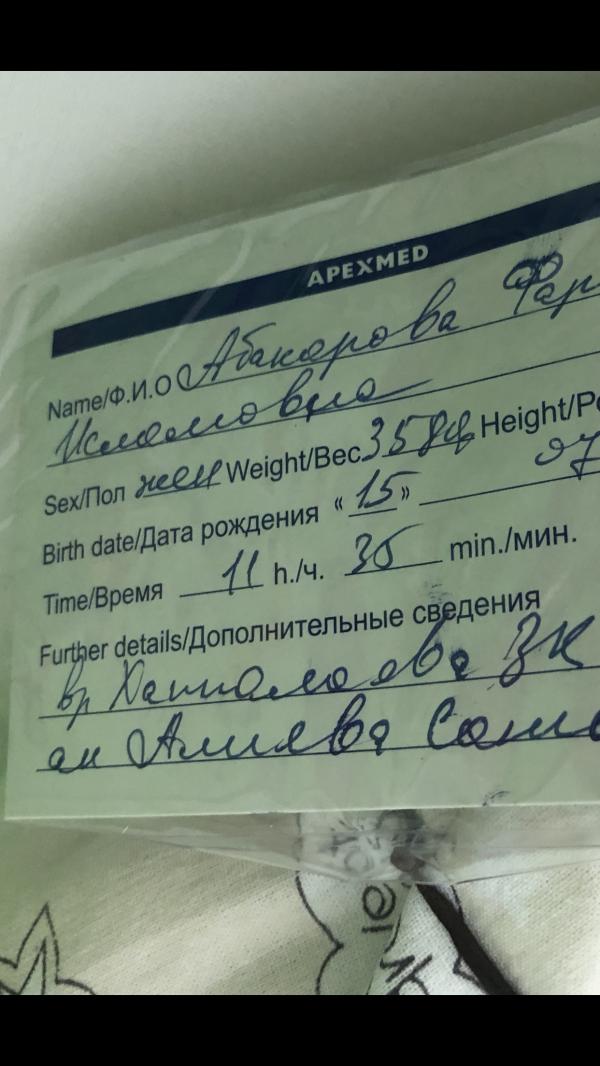 APEXMED
Name/Ф.И.О Абакарова Фар
Исламовна
Sex/Пол жен Weight/Вес 3580 Height/Ро
Birth date/Дата рождения « 15 » 07
Time/Время 11 h./ч. 35 min./мин.
Further details/Дополнительные сведения
вр ЗК
ак Алиева